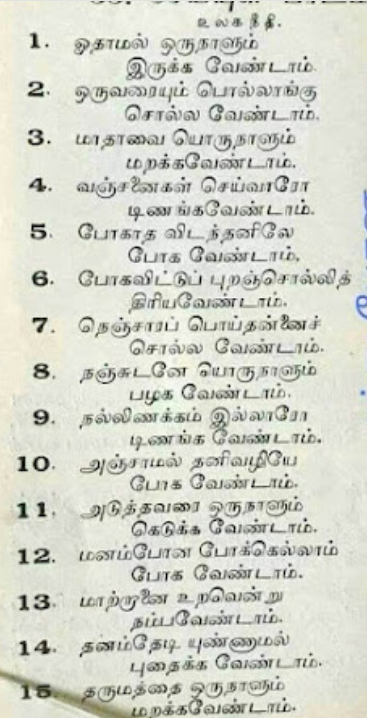 உலக நீதி.
1. ஓதாமல் ஒருநாளும்
இருக்க வேண்டாம்.
2. ஒருவரையும் பொல்லாங்கு
சொல்ல வேண்டாம்.
3. மாதாவை யொருநாளும்
மறக்கவேண்டாம்.
4. வஞ்சனைகள் செய்வாரோ
டிணங்கவேண்டாம்.
5. போகாத விடந்தனிலே
போக வேண்டாம்.
6. போகவிட்டுப் புறஞ்சொல்லித்
திரியவேண்டாம்.
7. நெஞ்சாரப் பொய்தன்னைச்
சொல்ல வேண்டாம்.
8. நஞ்சுடனே யொருநாளும்
பழக வேண்டாம்.
9. நல்லிணக்கம் இல்லாரோ
டிணங்க வேண்டாம்.
10. அஞ்சாமல் தனிவழியே
போக வேண்டாம்.
11. அடுத்தவரை ஒருநாளும்
கெடுக்க வேண்டாம்.
12. மனம்போன போக்கெல்லாம்
போக வேண்டாம்.
13. மாற்றானை உறவென்று
நம்பவேண்டாம்.
14. தனம்தேடி யுண்ணாமல்
புதைக்க வேண்டாம்.
15. தருமத்தை ஒருநாளும்
மறக்கவேண்டாம்.